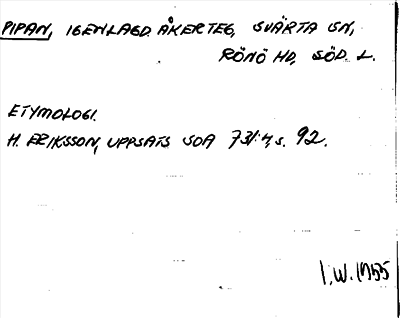 PIPAN, IGENLAGD ÅKERTEG, SVÄRTA SN,
RÖNÖ HD, SÖD. L.
ETYMOLOGI.
H. ERIKSSON, UPPSATS SOA 731:4, s. 92.
I.W. 1955